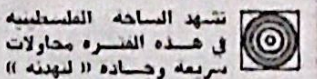 تشهد الساحه الفلسطينيه
في هذه الفتره محاولات
سريعه وحاده (( لتهدئه ))